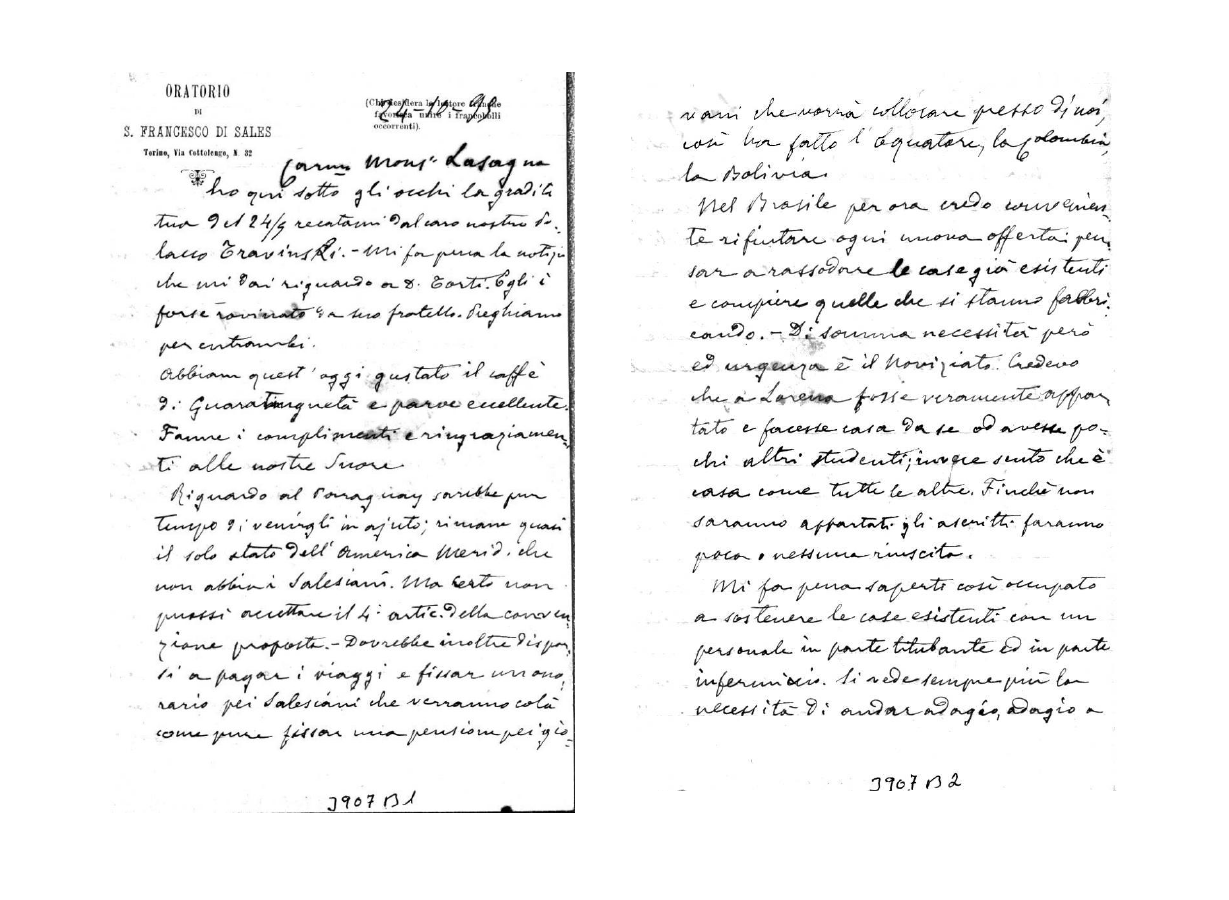 ORATORIO
DI
S. FRANCESCO DI SALES
Torino, Via Cottolengo, N. 32
(Chi desidera la lettore
favorisca unire i francobolli
occorrenti).
24-10-93
Carmo Monsr Lasagna
ho qui sotto gli occhi la gradita
tua del 24/9 recatami dal caro nostro Po-
lacco Travinski. - Mi fa pena la notizia
che mi dai riguardo a D. Torti. Egli è
forse rovinato da suo fratello. Preghiamo
per entrambi.
Abbiam quest'oggi gustato il caffè
di Guaratinguetà e parve eccellente.
Fanne i complimenti e ringraziamen-
ti alle nostre Suore
Riguardo al Paraguay sarebbe pur
tempo di venirgli in ajuto; rimane quasi
il solo stato dell'America Merid. che
non abbia i Salesiani. Ma certo non
puossi accettare il 4° artic. della conven-
zione proposta. - Dovrebbe inoltre dispor-
si a pagar i viaggi e fissar un ono-
rario pei Salesiani che verranno colà
come pure fissar una pensione pei gio-
3907 B1
vani che vorrà collocare presso di noi,
così ha fatto l'Equatore, la Colombia,
la Bolivia.
Nel Brasile per ora credo convenien-
te rifiutare ogni nuova offerta; pen-
sar a rassodare le case già esistenti
e compiere quelle che si stanno fabbri-
cando. - Di somma necessità però
ed urgenza è il Noviziato. Credevo
che a Lorena fosse veramente appar-
tato e facesse casa da se od avesse po-
chi altri studenti; invece sento che è
casa come tutte le altre. Finchè non
saranno appartati gli ascritti faranno
poca o nessuna riuscita.
Mi fa pena saperti così occupato
a sostenere le case esistenti con un
personale in parte titubante ed in parte
infermiccio. Si vede sempre più la
necessità di andar adagio, adagio a
3907 B2